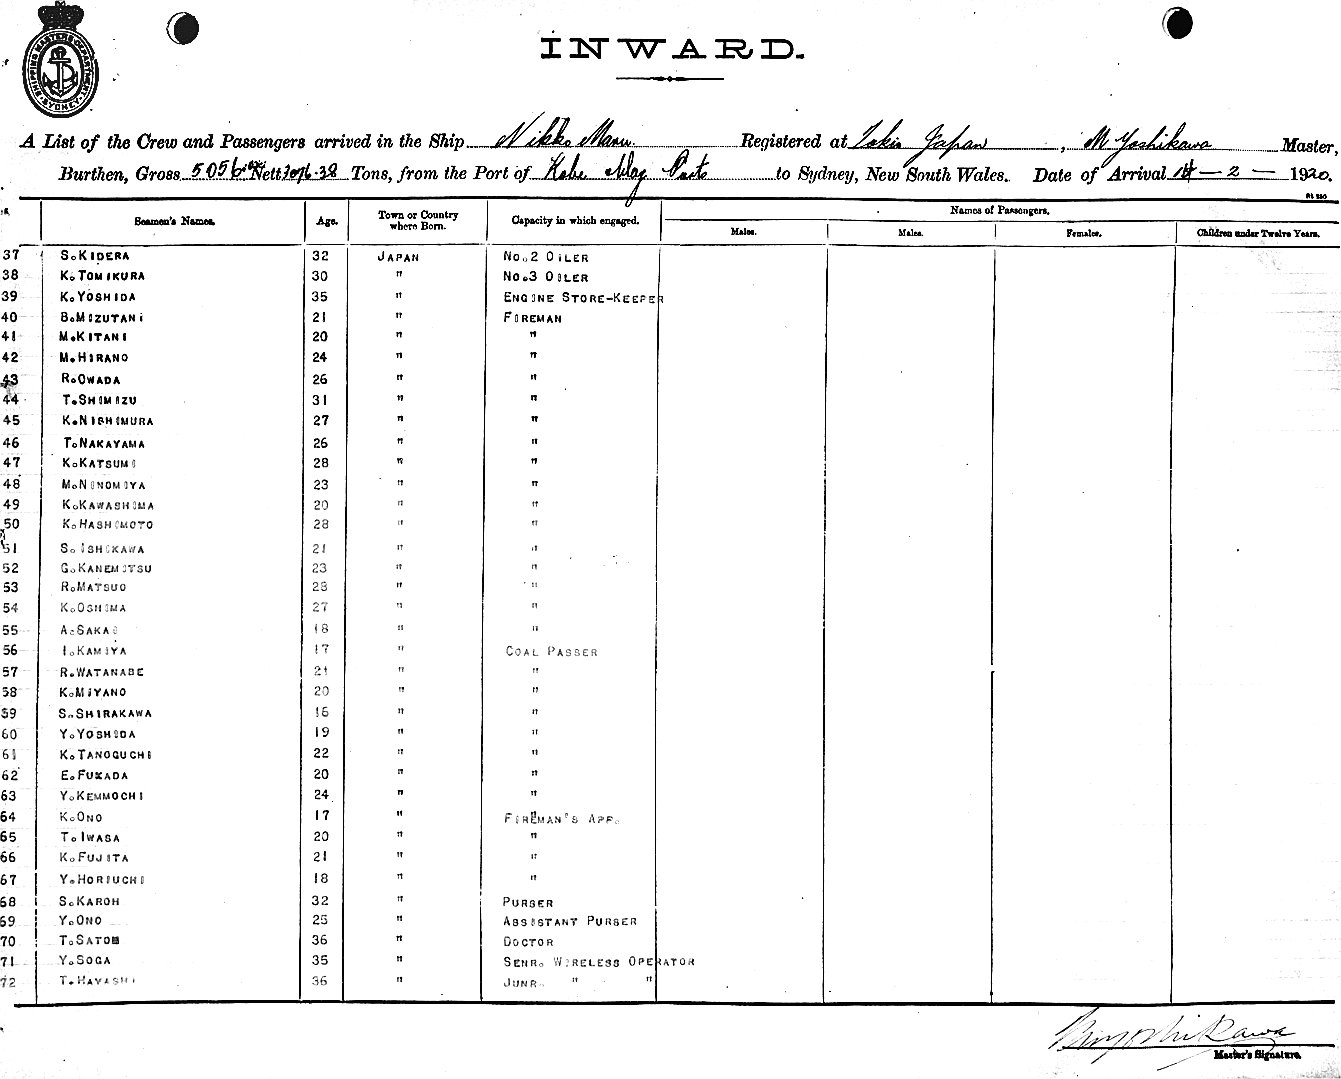 SHIPPING MASTERS DEPARTMENT SYDNEY
INWARD.
A List of the Crew and Passengers arrived in the Ship Nikko Maru. Registered at Tokio Japan, M Yoshikawa Master,
Burthen, Gross 5056 Nett 3076.38 Tons, from the Port of Kobe Ports to Sydney, New South Wales. Date of Arrival - 2 - 1920.
Seamen's Names. Age. Town or Country where Born. Capacity in which engaged. Names of Passengers.
Males. Males. Females. Children under Twelve Years.
37 S.KIDERA 32 JAPAN NO.2 OILER
38 K.TOMIKURA 30 " NO.3 OILER
39 K.YOSHIDA 35 " ENGINE STORE-KEEPER
40 B.MIZUTANI 21 " FIREMAN
41 M.KITANI 20 " "
42 M.HIRANO 24 " "
43 R.OWADA 26 " "
44 T.SHIMIZU 31 " "
45 K.NISHIMURA 27 " "
46 T.NAKAYAMA 26 " "
47 K.KATSUMI 28 " "
48 M.NINOMIYA 23 " "
49 K.KAWASHIMA 20 " "
50 K.HASHIMOTO 28 " "
51 S.ISHIKAWA 21 " "
52 G.KANEMITSU 23 " "
53 R.MATSUO 23 " "
54 K.OSHIMA 27 " "
55 A.SAKAI 18 " "
56 I.KAMIYA 17 " COAL PASSER
57 R.WATANABE 21 " "
58 K.MIYANO 20 " "
59 S.SHIRAKAWA 16 " "
60 Y.YOSHIDA 19 " "
61 K.TANOGUCHI 22 " "
62 E.FUKADA 20 " "
63 Y.KEMMOCHI 24 " "
64 K.ONO 17 " FIREMAN'S APP.
65 T.IWASA 20 " "
66 K.FUJITA 21 " "
67 Y.HORIUCHI 18 " "
68 S.KAROH 32 " PURSER
69 Y.ONO 25 " ASSISTANT PURSER
70 T.SATOH 36 " DOCTOR
71 Y.SOGA 35 " SENR. WIRELESS OPERATOR
72 T.HAYASHI 36 " JUNR. " "
Master's Signature.